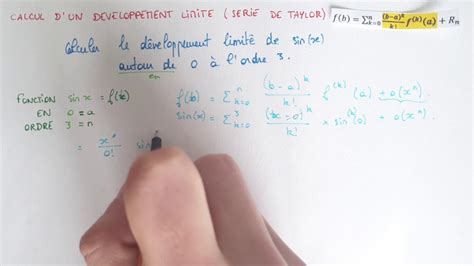 CALCUL D'UN DEVELOPPEMENT LIMITE (SERIE DE TAYLOR) f(b) = ∑ⁿₖ₌₀ (b−a)ᵏ/k! f⁽ᵏ⁾(a) + Rₙ
Calculer le développement limité de sin(x)
autour de 0 à l'ordre 3.
en
FONCTION sin x = f(x)
EN 0 = a
ORDRE 3 = n
f(b) = ∑ⁿₖ₌₀ (b−a)ᵏ/k! f⁽ᵏ⁾(a) + o(xⁿ)
sin(x) = ∑³ₖ₌₀ (x−0)ᵏ/k! × sin⁽ᵏ⁾(0) + o(xⁿ)
= x⁰/0! sin